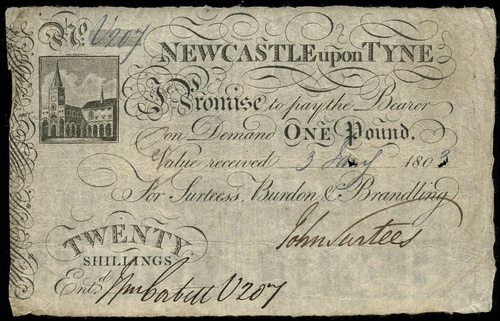 No. V207
NEWCASTLE upon TYNE
I Promise to pay the Bearer
on Demand ONE Pound.
Value received 3 Jany 1803
For Surtees, Burdon & Brandling
John Surtees
TWENTY
SHILLINGS
Entd. Wm Corbett V207